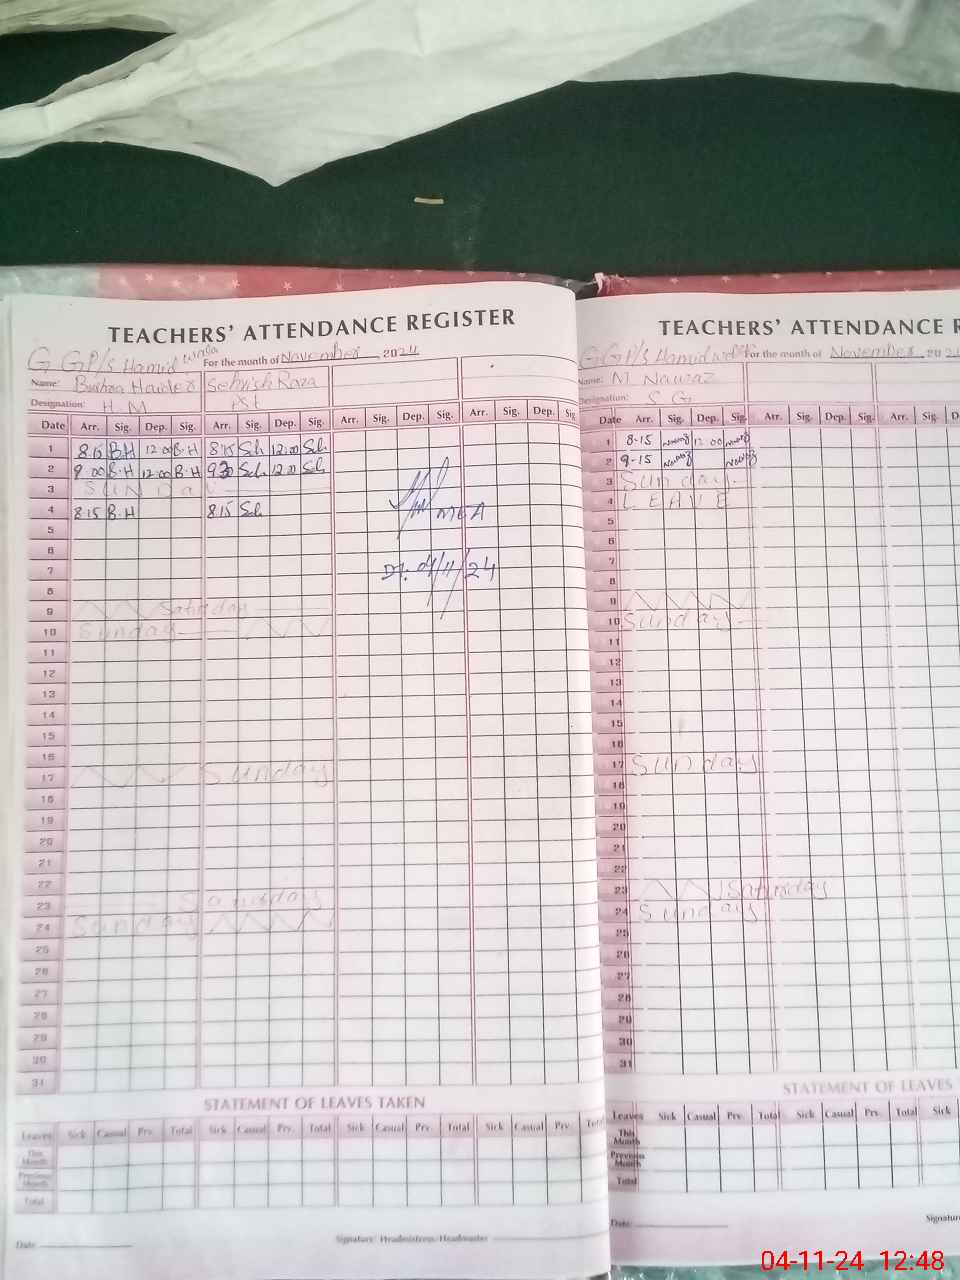 TEACHERS' ATTENDANCE REGISTER
G GP/S Hamid wala For the month of November 2024
Name: Bushra Haider Sehrish Raza
Designation: H.M
Date Arr. Sig. Dep. Sig. Arr. Sig. Dep. Sig. Arr. Sig. Dep. Sig. Arr. Sig. Dep. Sig.
1 8.15 B.H 12.00 B.H 8.15 Sch 12.00 Sch
2 9.00 B.H 12.00 B.H 9.30 Sch 12.00 Sch
3 SUNDay
4 8.15 B.H 8.15 Sch
5
6
7
Dt. 04/11/24
8
9 Saturday
10 Sunday
11
12
13
14
15
16
17 Sunday
18
19
20
21
22
23 Saturday
24 Sunday
25
26
27
28
29
30
31
STATEMENT OF LEAVES TAKEN
Leaves Sick Casual Prv. Total Sick Casual Prv. Total Sick Casual Prv. Total Sick Casual Prv. Total
This Month
Previous Month
Total
Date Signature: Headmistress/Headmaster
TEACHERS' ATTENDANCE R
GGP/S Hamid For the month of November 202
Name: M Nawaz
Designation: S G
Date Arr. Sig. Dep. Sig. Arr. Sig. Dep. Sig. Arr. Sig.
1 8-15 Nawaz 12.00 Nawaz
2 9-15 Nawaz Nawaz
3 Sunday
4 LEAVE
5
6
7
8
9
10 Sunday
11
12
13
14
15
16
17 Sunday
18
19
20
21
22
23 Saturday
24 Sunday
25
26
27
28
29
30
31
STATEMENT OF LEAVES
Leaves Sick Casual Prv. Total Sick Casual Prv. Total Sick
This Month
Previous Month
Total
Date: Signature
04-11-24 12:48